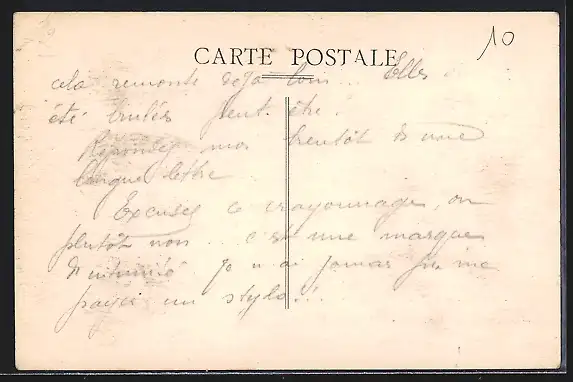 10
CARTE POSTALE
cela remonte déjà loin... Elles
été brulées peut être.
Répondez moi bientôt d'une
longue lettre
Excusez ce crayonnage, ou
plutôt non... c'est une marque
d'intimité. Je n'ai jamais pu me
payer un stylo!..